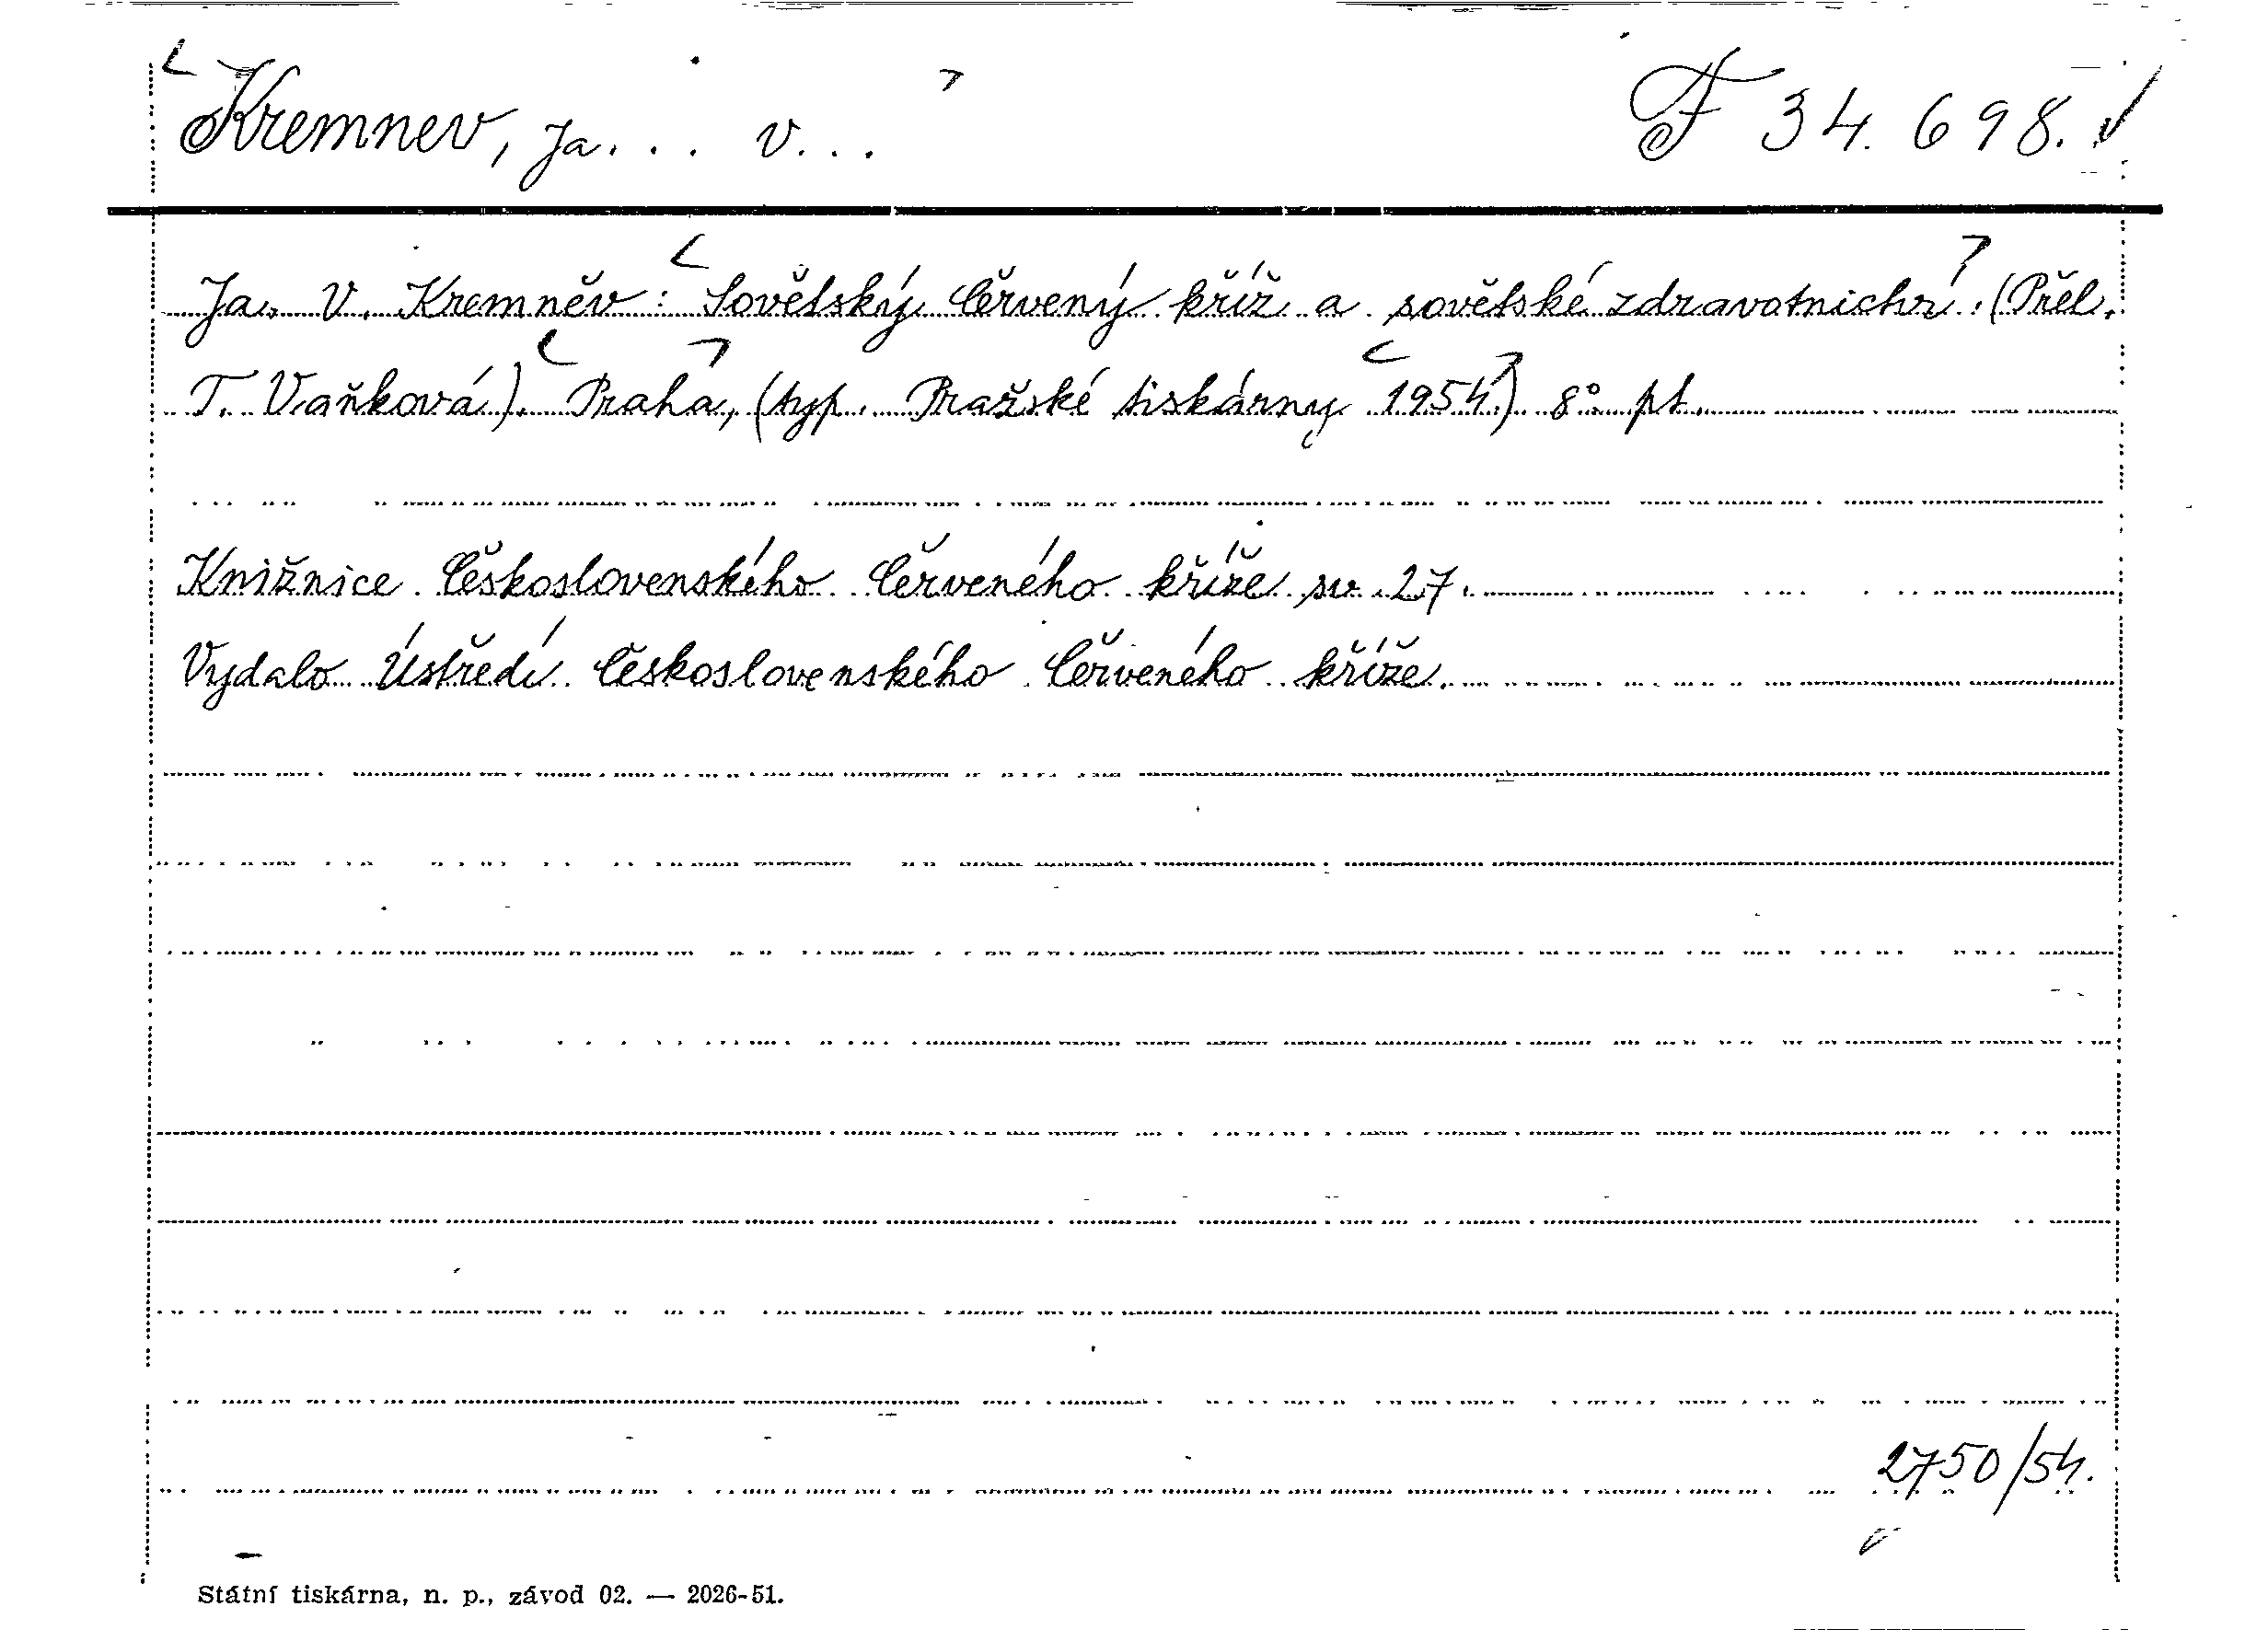 Kremnev, Ja... V... F 34.698.
Ja. V. Kremněv: Sovětský Červený kříž a sovětské zdravotnictví. (Přel.
T. Vaňková). Praha, (typ. Pražské tiskárny 1954.) 8° pt.
Knižnice Československého Červeného kříže sv. 27.
Vydalo Ústředí Československého Červeného kříže.
2750/54.
Státní tiskárna, n. p., závod 02. — 2026-51.